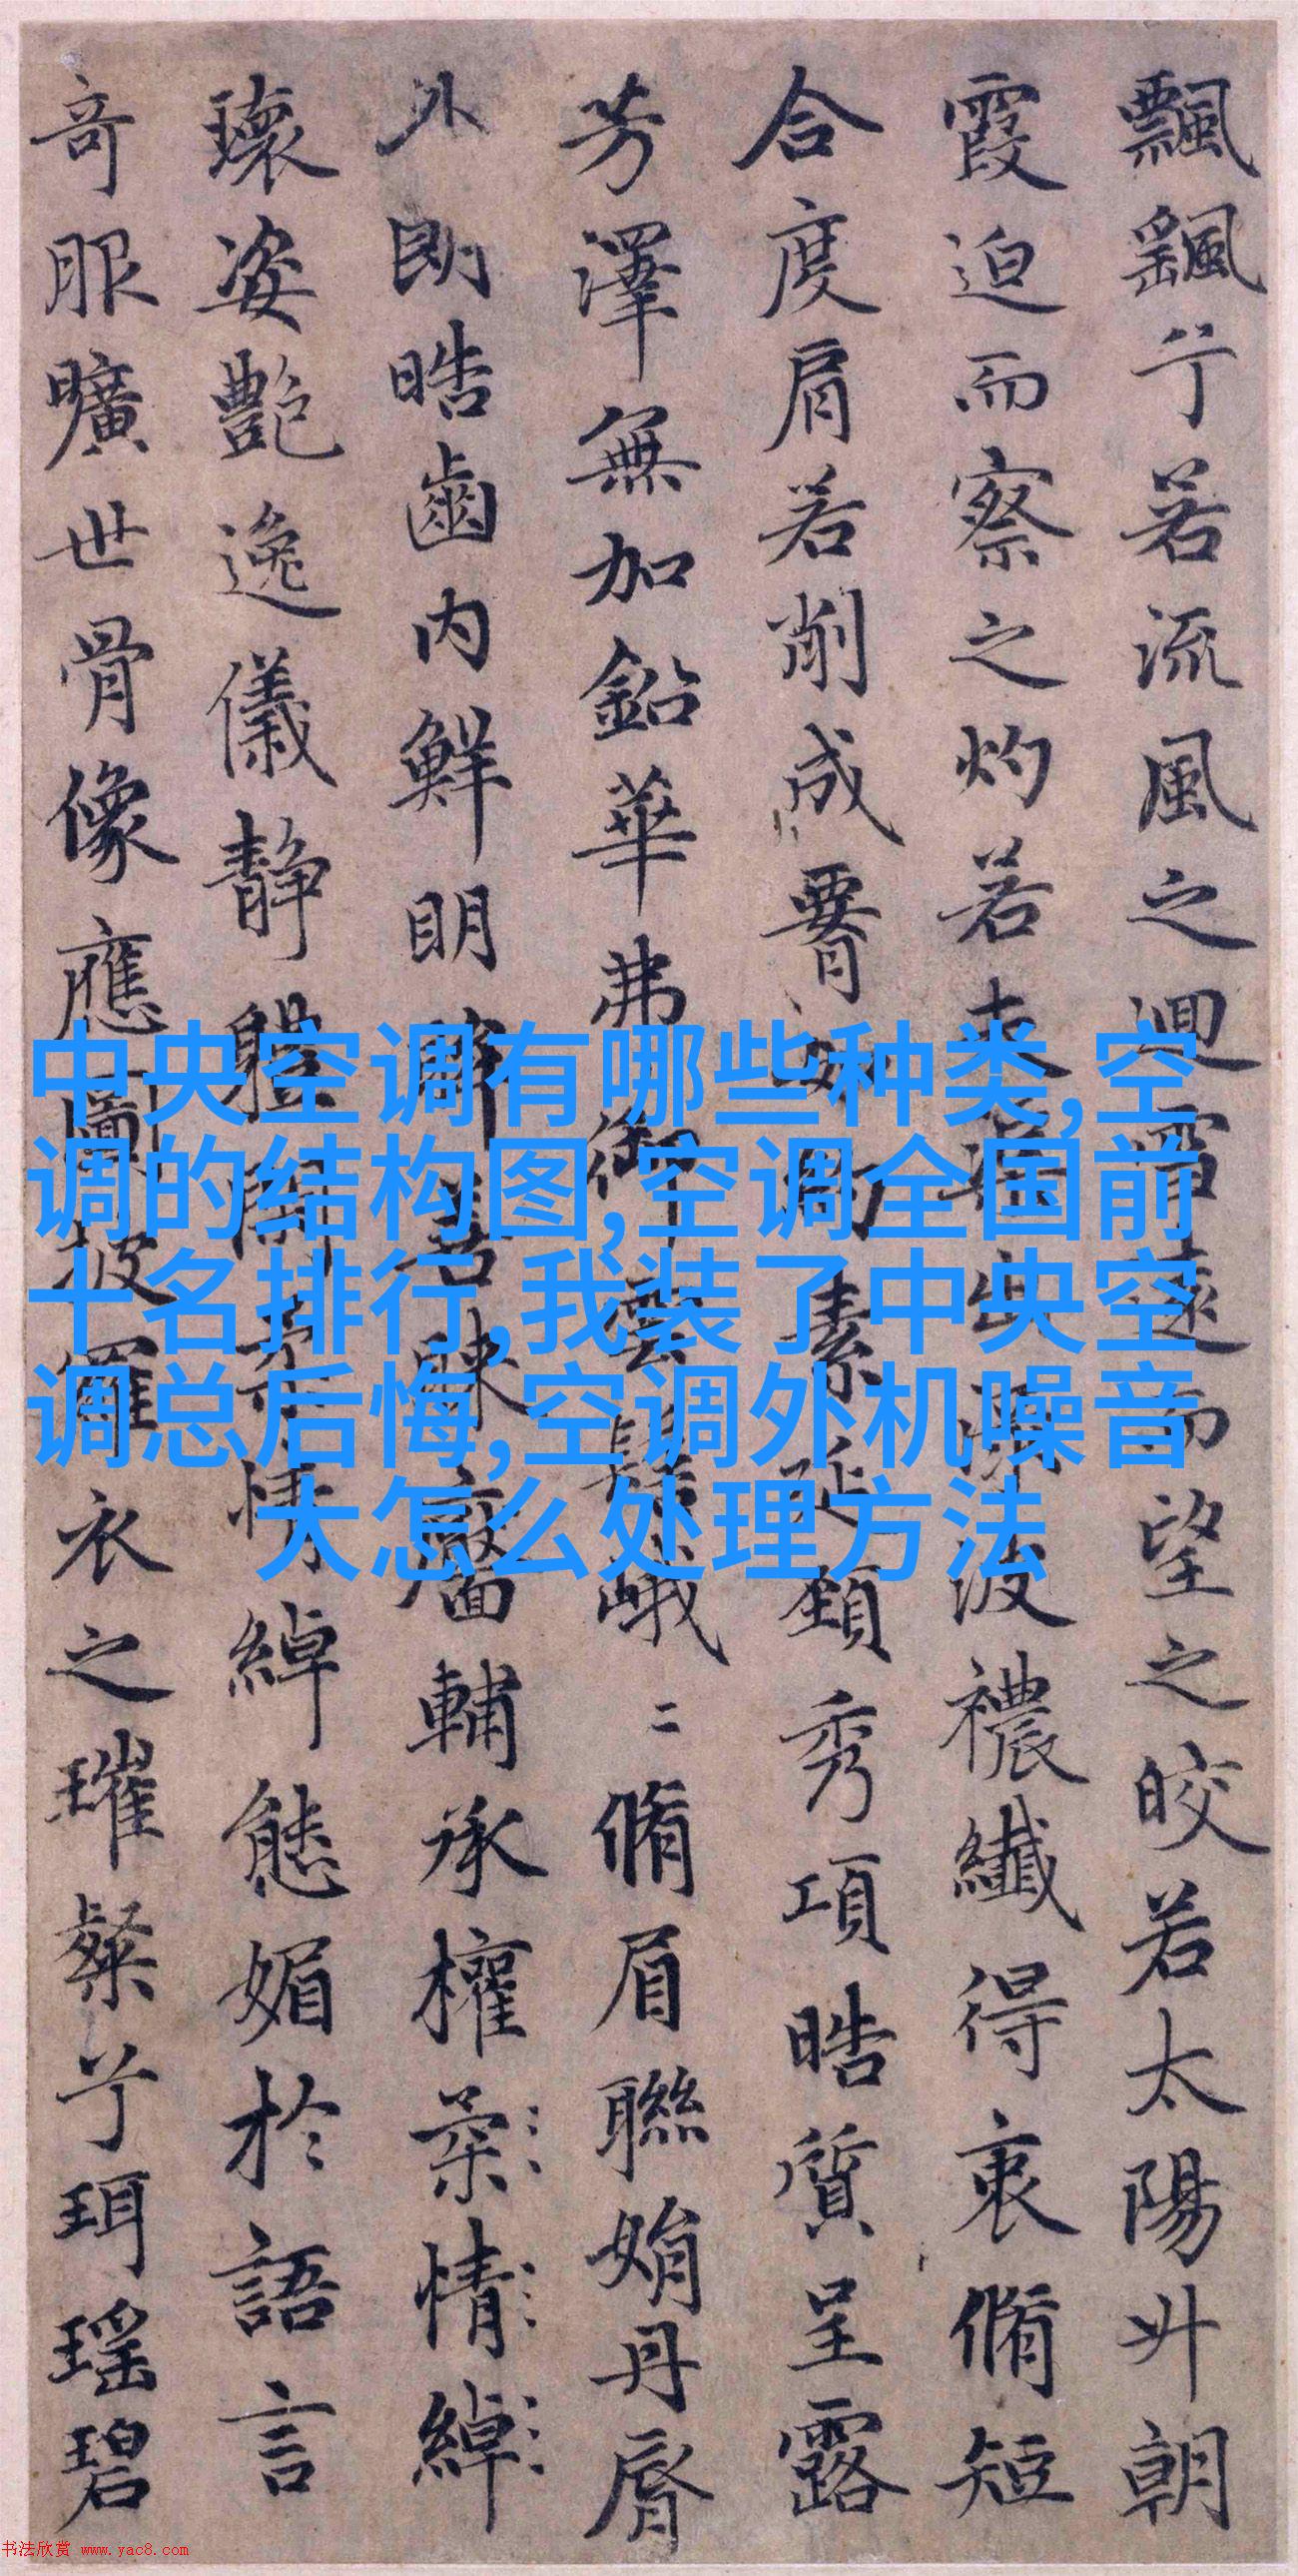 飄飖兮若流風之迴雪遠而望之皎若太陽升朝
霞迫而察之灼若芙蕖出淥波襛纖得衷脩短
合度肩若削成署如約素延頸秀項皓質呈露
芳澤無加鉛華弗御雲髻峨二脩眉聯娟丹唇
外朗皓齒内鮮明眸善睞靨輔承權柔情綽
瓌姿艷逸儀静體閑柔情綽態媚於語言
奇服曠世骨像應圖披羅衣之璀粲兮珥瑶碧
中央空调有哪些种类,空
调的结构图,空调全国前
十名排行,我装了中央空
调总后悔,空调外机噪音
大怎么处理方法
书法欣赏 www.yac8.com